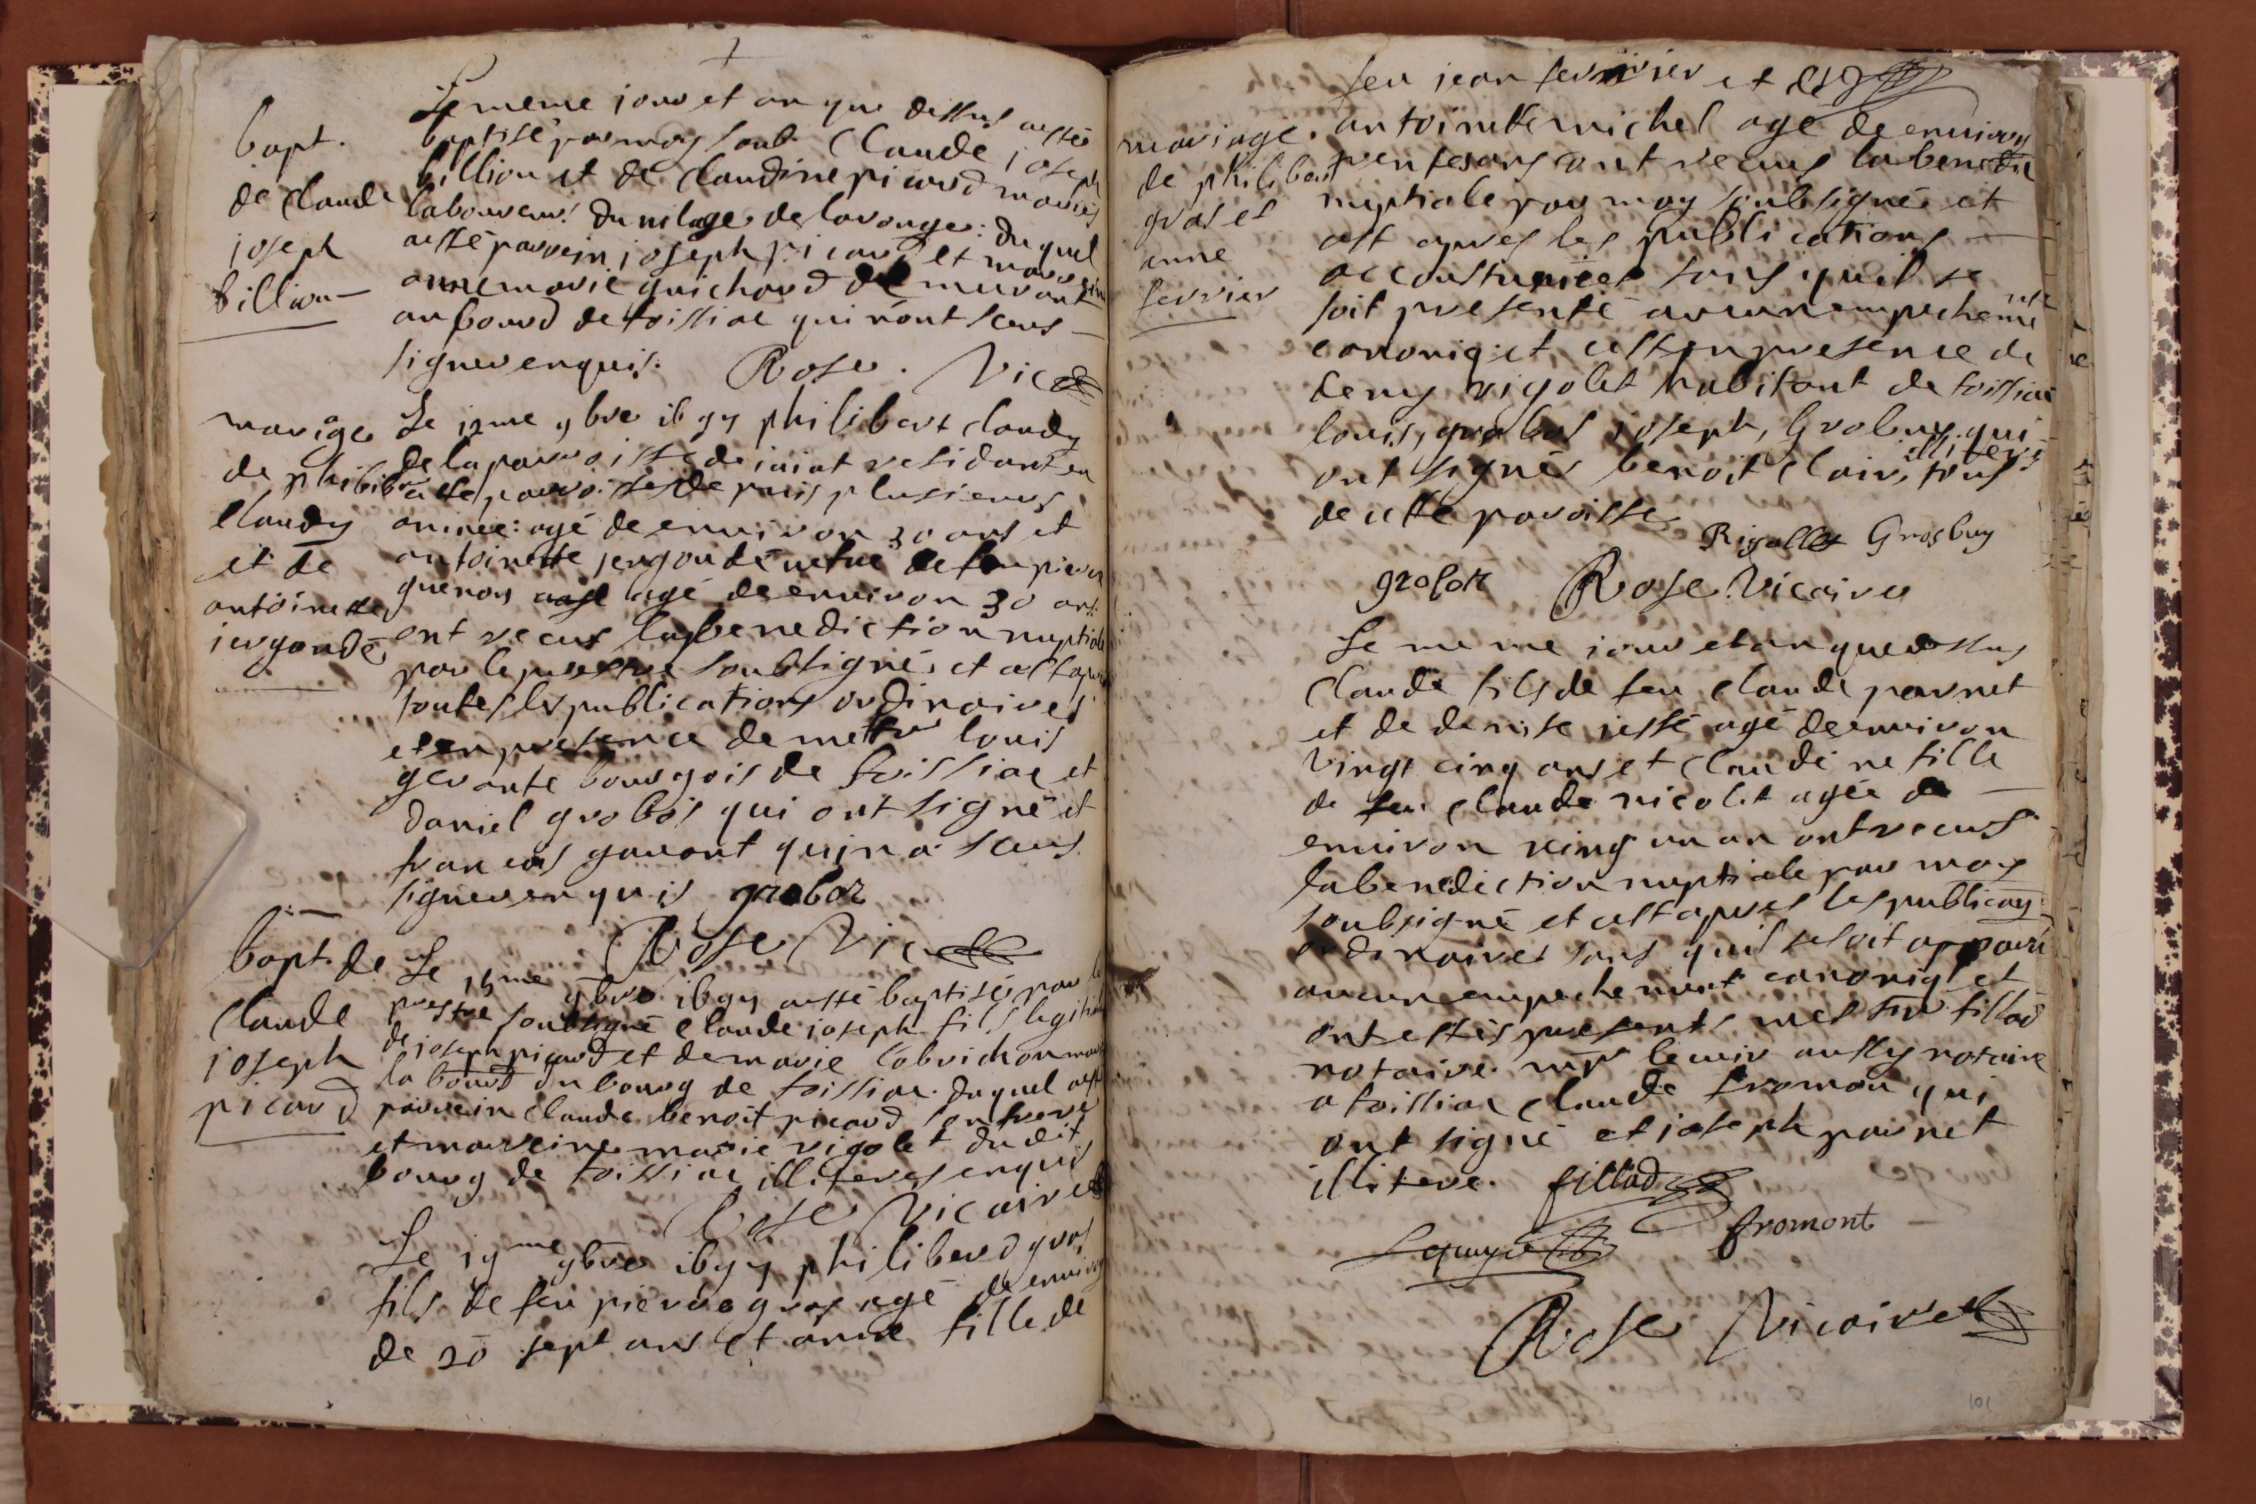 bapt.
de Claude
joseph
billion
Le meme jour et an que dessus a esté
baptisé par moy soub. Claude joseph
billion et de Claudine picard mariés
laboureurs du vilage de lavonge: duquel
a esté parrein joseph picard et marreine
anne marie guichard demeurant
au bourd de toissiac qui n'ont sceus
signer enquis. Rose. Vic
mariage
de philibert
Claudy
et de
antoinette
jergondé
Le 12me 9bre philibert Claudy
de la parroisse de jaiat residant en
cette parroisse depuis plusieurs
année: agé de environ 30 ans et
antoinette jergondé vefve de feu pierre
guenon agé de environ 30 ans
ont receus la benediction nuptiale
par le prestre soubsigné, et a est apres
toutes les publications ordinaires
et en presence de mettre louis
gerante bourgois de toissiac et
daniel grobos qui ont signé et
francois gavant qui n'a sceus
signer enquis groboz
Rose Vic
bapt. de
Claude
joseph
picard
Le 9bre a esté baptisé par le
prestre soubsigné Claude joseph fils legitime
de joseph picard et de marie Cobrichon mariés
la bourd du bourg de toissiac. duquel a esté
parrein Claude benoit picard son frere
et marreine marie rigolet dudit
bourg de toissiac illiteres enquis
Rose Vicaire
Le 19me 9bre philiberd gros
fils de feu pierre gros agé de environ
de 20 sept ans et anne fille de
feu jean ferrivier et
mariage
de philibert
gros et
anne
ferrier
antoinette michel agé de environ
trente ans ont receus la benedic
nuptiale par moy soubsigné et
est apres les publications
accoustumées sans qu'il se
soit presenté aucun empechemt
canoniq: et cest en presence de
remy rigolet habitant de toissiac
louis, grobos joseph, Grobuy qui
ont signés benoit Clair, illitere tous
de cette paroisse
Rigollet Grosbuy
groboz Rose Vicaire
Le meme jour et an que dessus
Claude fils de feu Claude parnet
et de denise jessé agé de environ
vingt cinq ans et Claudine fille
de feu Claude nicolet agée de
environ ving un an ont receus
la benediction nuptiale par moy
soubsigné et cest apres les publicaons
ordinaires sans qu'il se soit apparu
aucun empechement canoniq: et
ont estés presents mestre fillod
notaire mr lecuir aussy notaire
a toissiac Claude fromon qui
ont signé et joseph parnet
illitere. fillod
fromont
Rose Vicaire
101